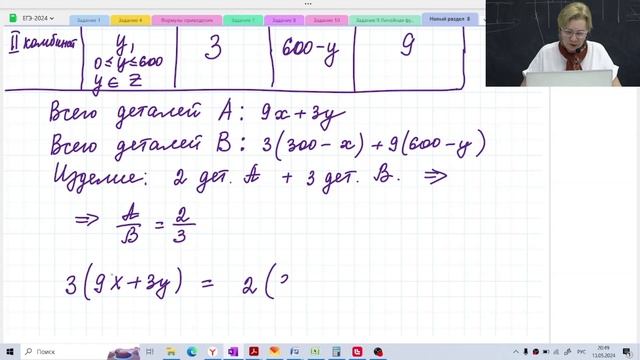 ЕГЭ-2024
Задание 1
Задание 4
Формулы приведения
Задание 7
Задание 8
Задание 10
Задание 9 Линейная фу...
Новый раздел 8
II комбинат y, 3 600-y 9
0 ≤ y ≤ 600
y ∈ Z
Всего деталей A: 9x+3y
Всего деталей B: 3(300-x)+9(600-y)
Изделие: 2 дет. A + 3 дет. B. ⇒
⇒ A/B = 2/3
3(9x+3y) = 2(
Поиск
РУС
20:49
13.05.2024